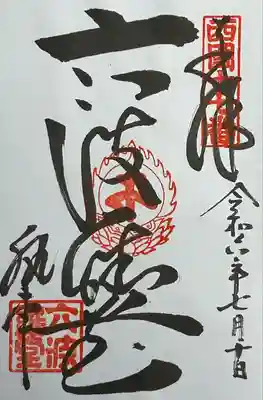 奉拝
西国十七番
令和六年七月十日
六波羅堂
執事
六波羅堂